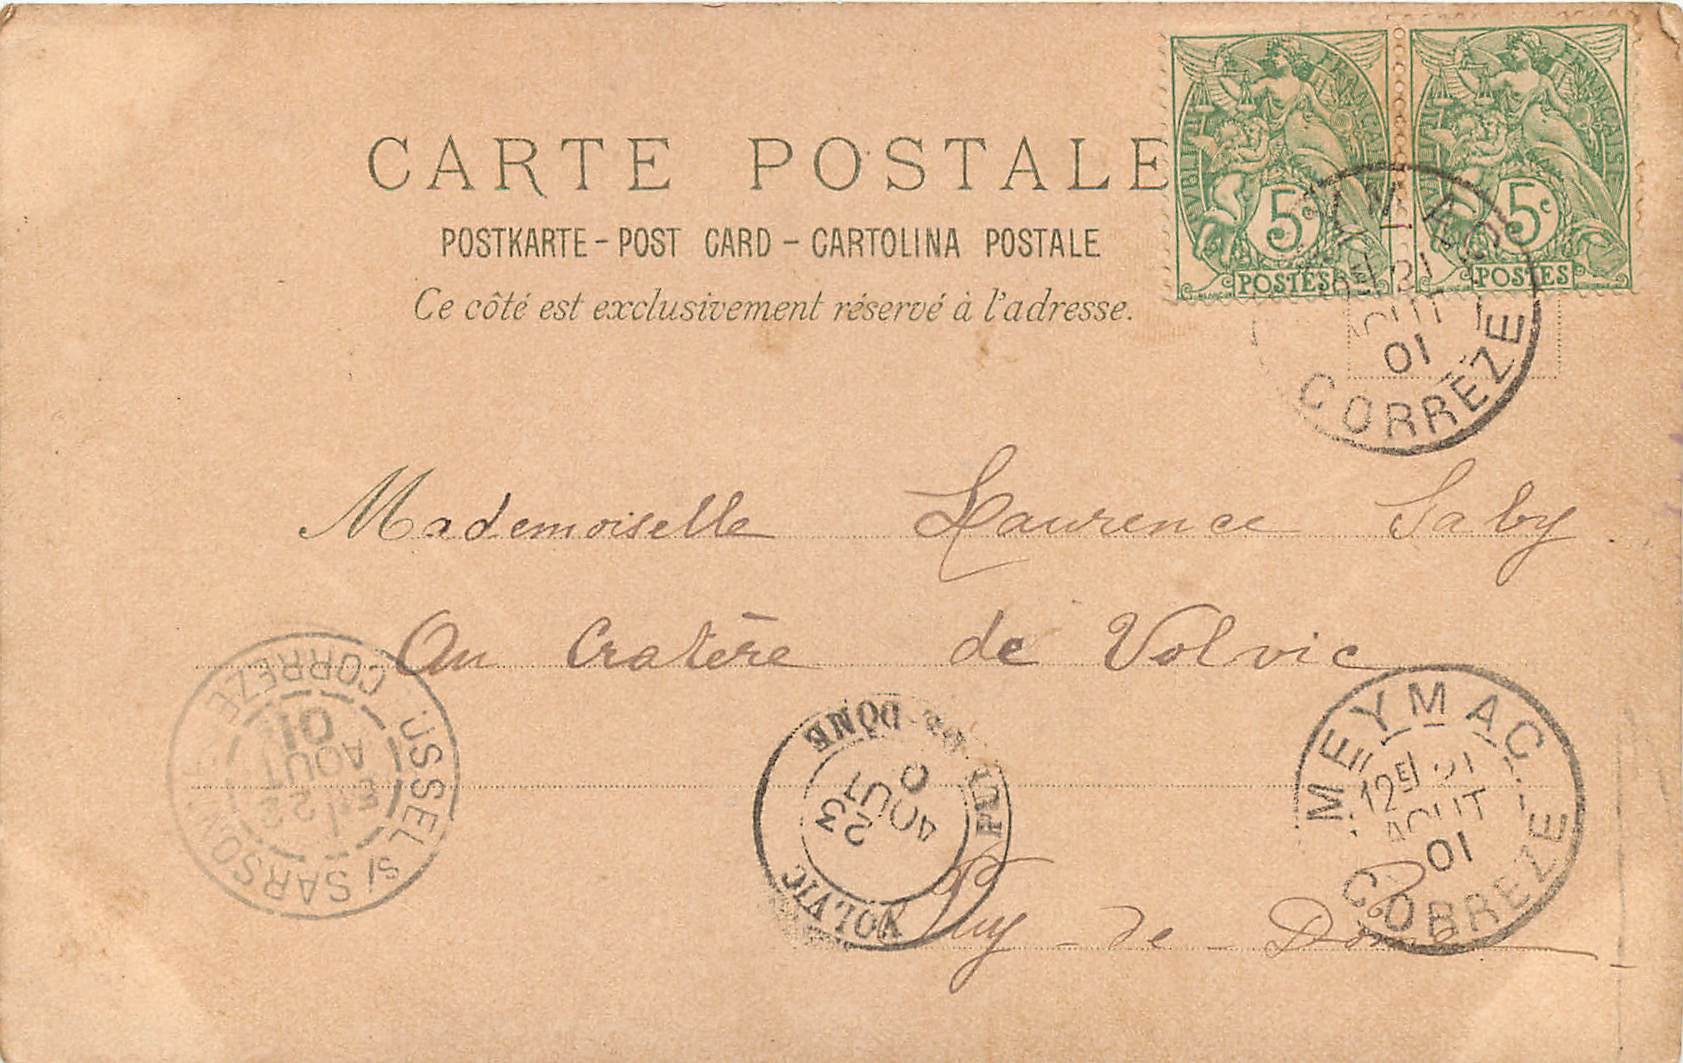 CARTE POSTALE
POSTKARTE - POST CARD - CARTOLINA POSTALE
Ce côté est exclusivement réservé à l'adresse.
RÉPUBLIQUE FRANÇAISE
5c
POSTES
RÉPUBLIQUE FRANÇAISE
5c
POSTES
MEYMAC
12E 21
AOUT
01
CORRÈZE
Mademoiselle Laurence Saby
Au Cratère de Volvic
Puy-de-Dôme
USSEL S/ SARSONNE
22
AOUT
01
CORREZE
VOLVIC
23
AOUT
0
PUY-DE-DÔME
MEYMAC
12E 21
AOUT
01
CORREZE